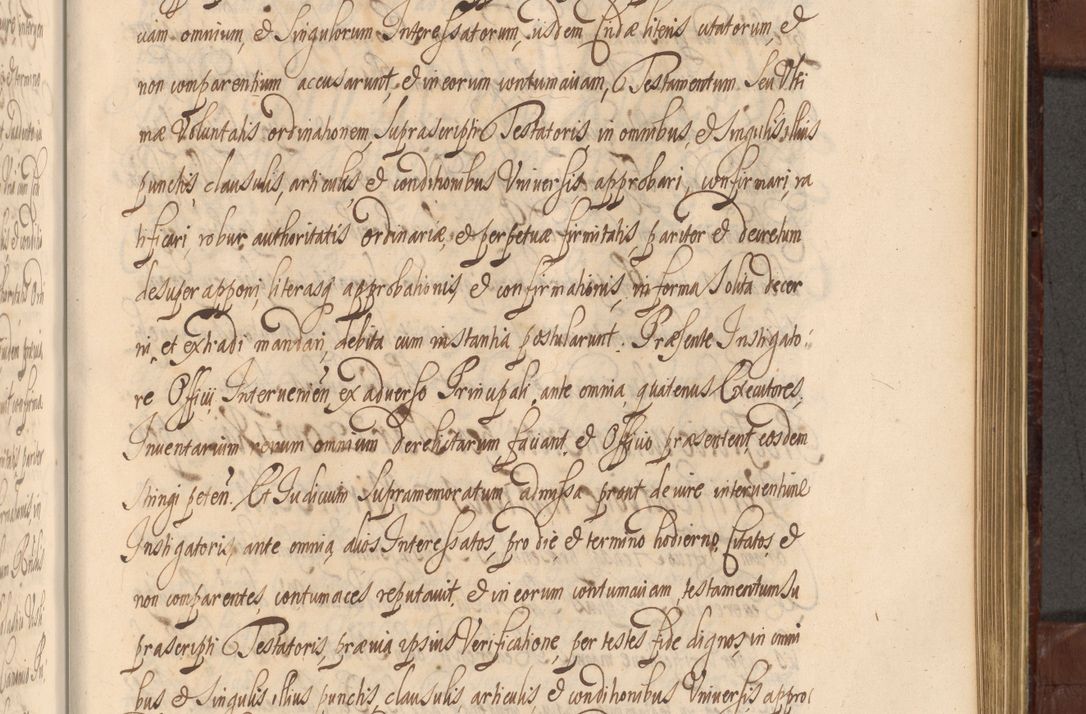 ciam omnium, & Singulorum Interessatorum, iisdem Eædæ literis citatorum, &
non comparentium accusarunt, & in eorum contumaciam, Testamentum Seu Ulti
mæ Voluntatis ordinationem, Suprascripti Testatoris, in omnibus, & Singulis illius
punctis, clausulis, articulis, & conditionibus Universis, approbari, confirmari, ra
tificari, robur authoritatis Ordinariæ, & perpetuæ firmitatis, pariter & decretum
desuper apponi, literasq approbationis, & confirmationis, in forma Solita decer
ni, et extradi mandari, debita cum instantia postularunt. Præsente Instigato-
re Officij Intervenien, ex adverso Principali, ante omnia, quatenus Executores,
Inventarium rerum omnium derelictarum, faciant, & Officio præsentent, eosdem
stringi peteñ. Et Judicium Supramemoratum, admissa prout de iure interventione
Instigatoris, ante omnia, alios Interessatos, pro die, & termino hodierno, Citatos, &
non comparentes, contumaces reputavit, & in eorum contumaciam, testamentum Su
prascripti Testatoris, prævia ipsius Verificatione, per testes fide dignos, in omni
bus & Singulis illius punctis, clausulis, articulis, & conditionibus Universis appro